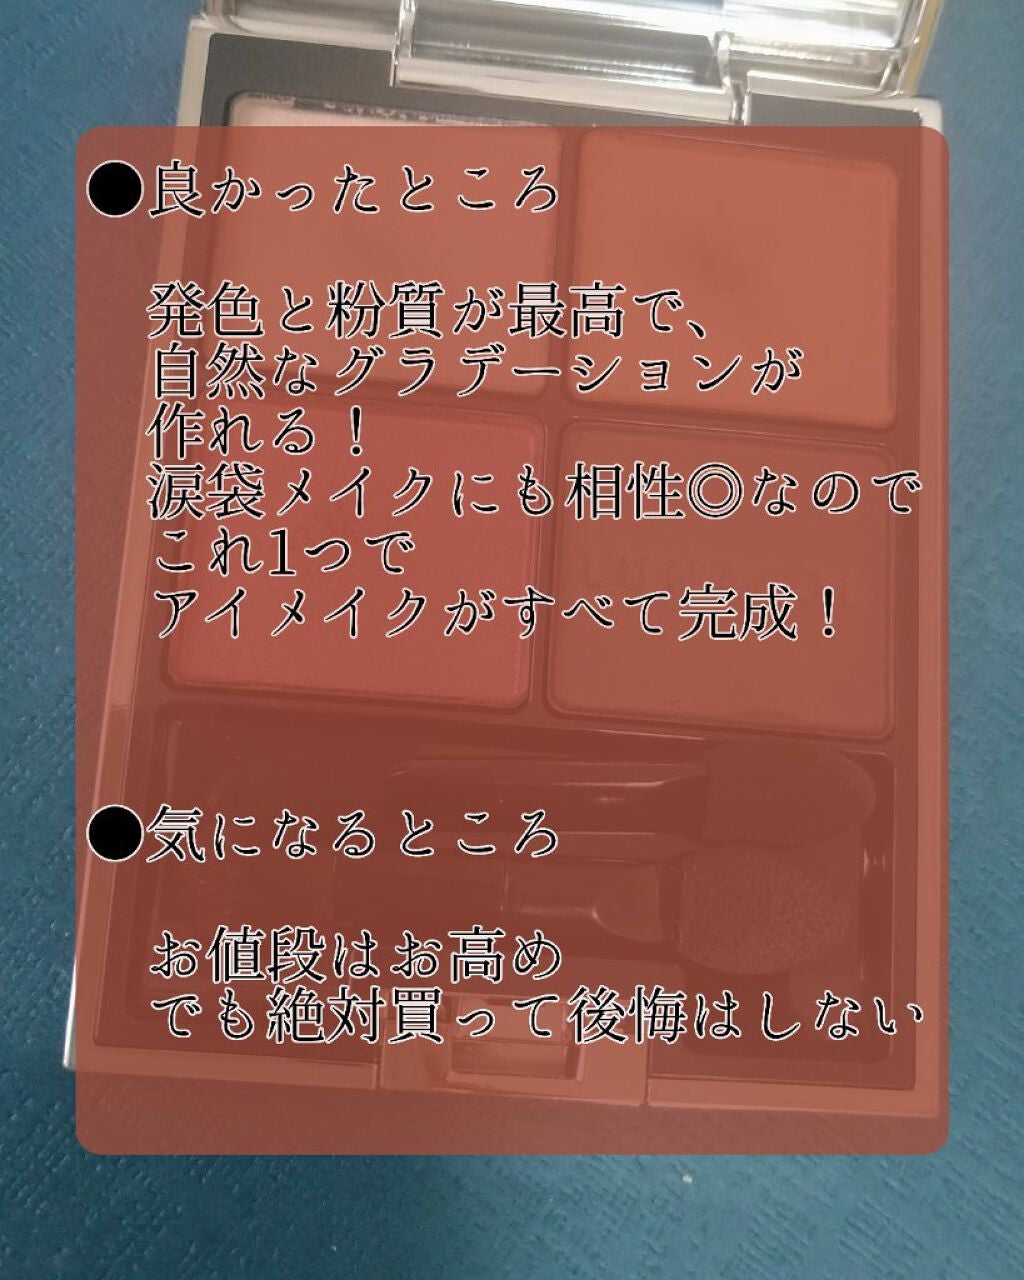 ●良かったところ
発色と粉質が最高で、
自然なグラデーションが
作れる！
涙袋メイクにも相性◎なので
これ1つで
アイメイクがすべて完成！
●気になるところ
お値段はお高め
でも絶対買って後悔はしない